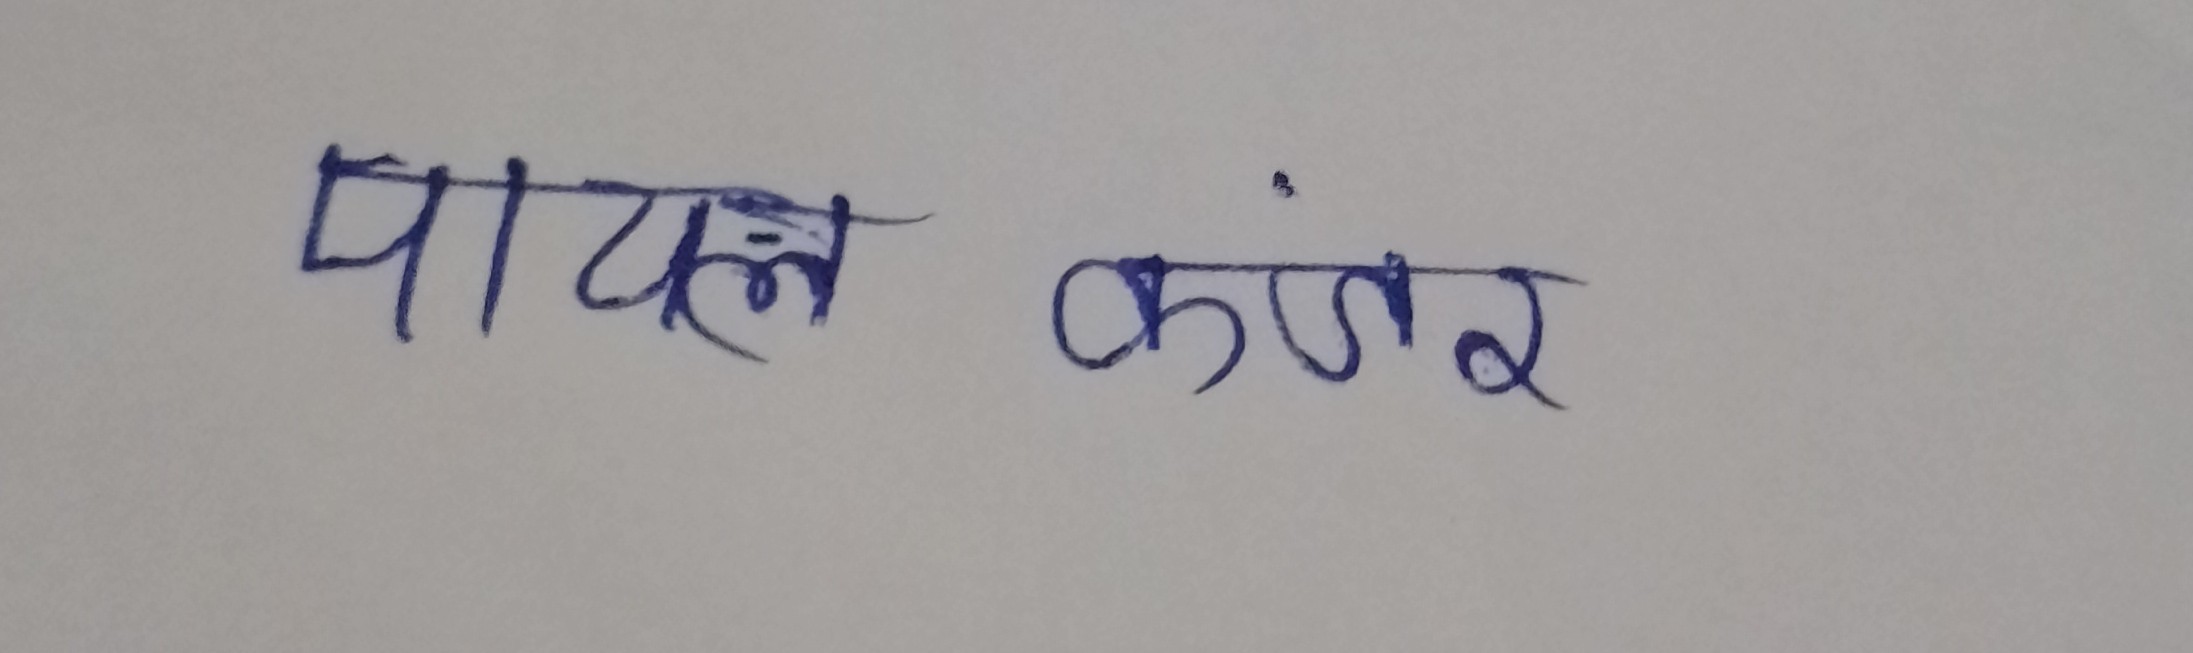 पायल कंजर